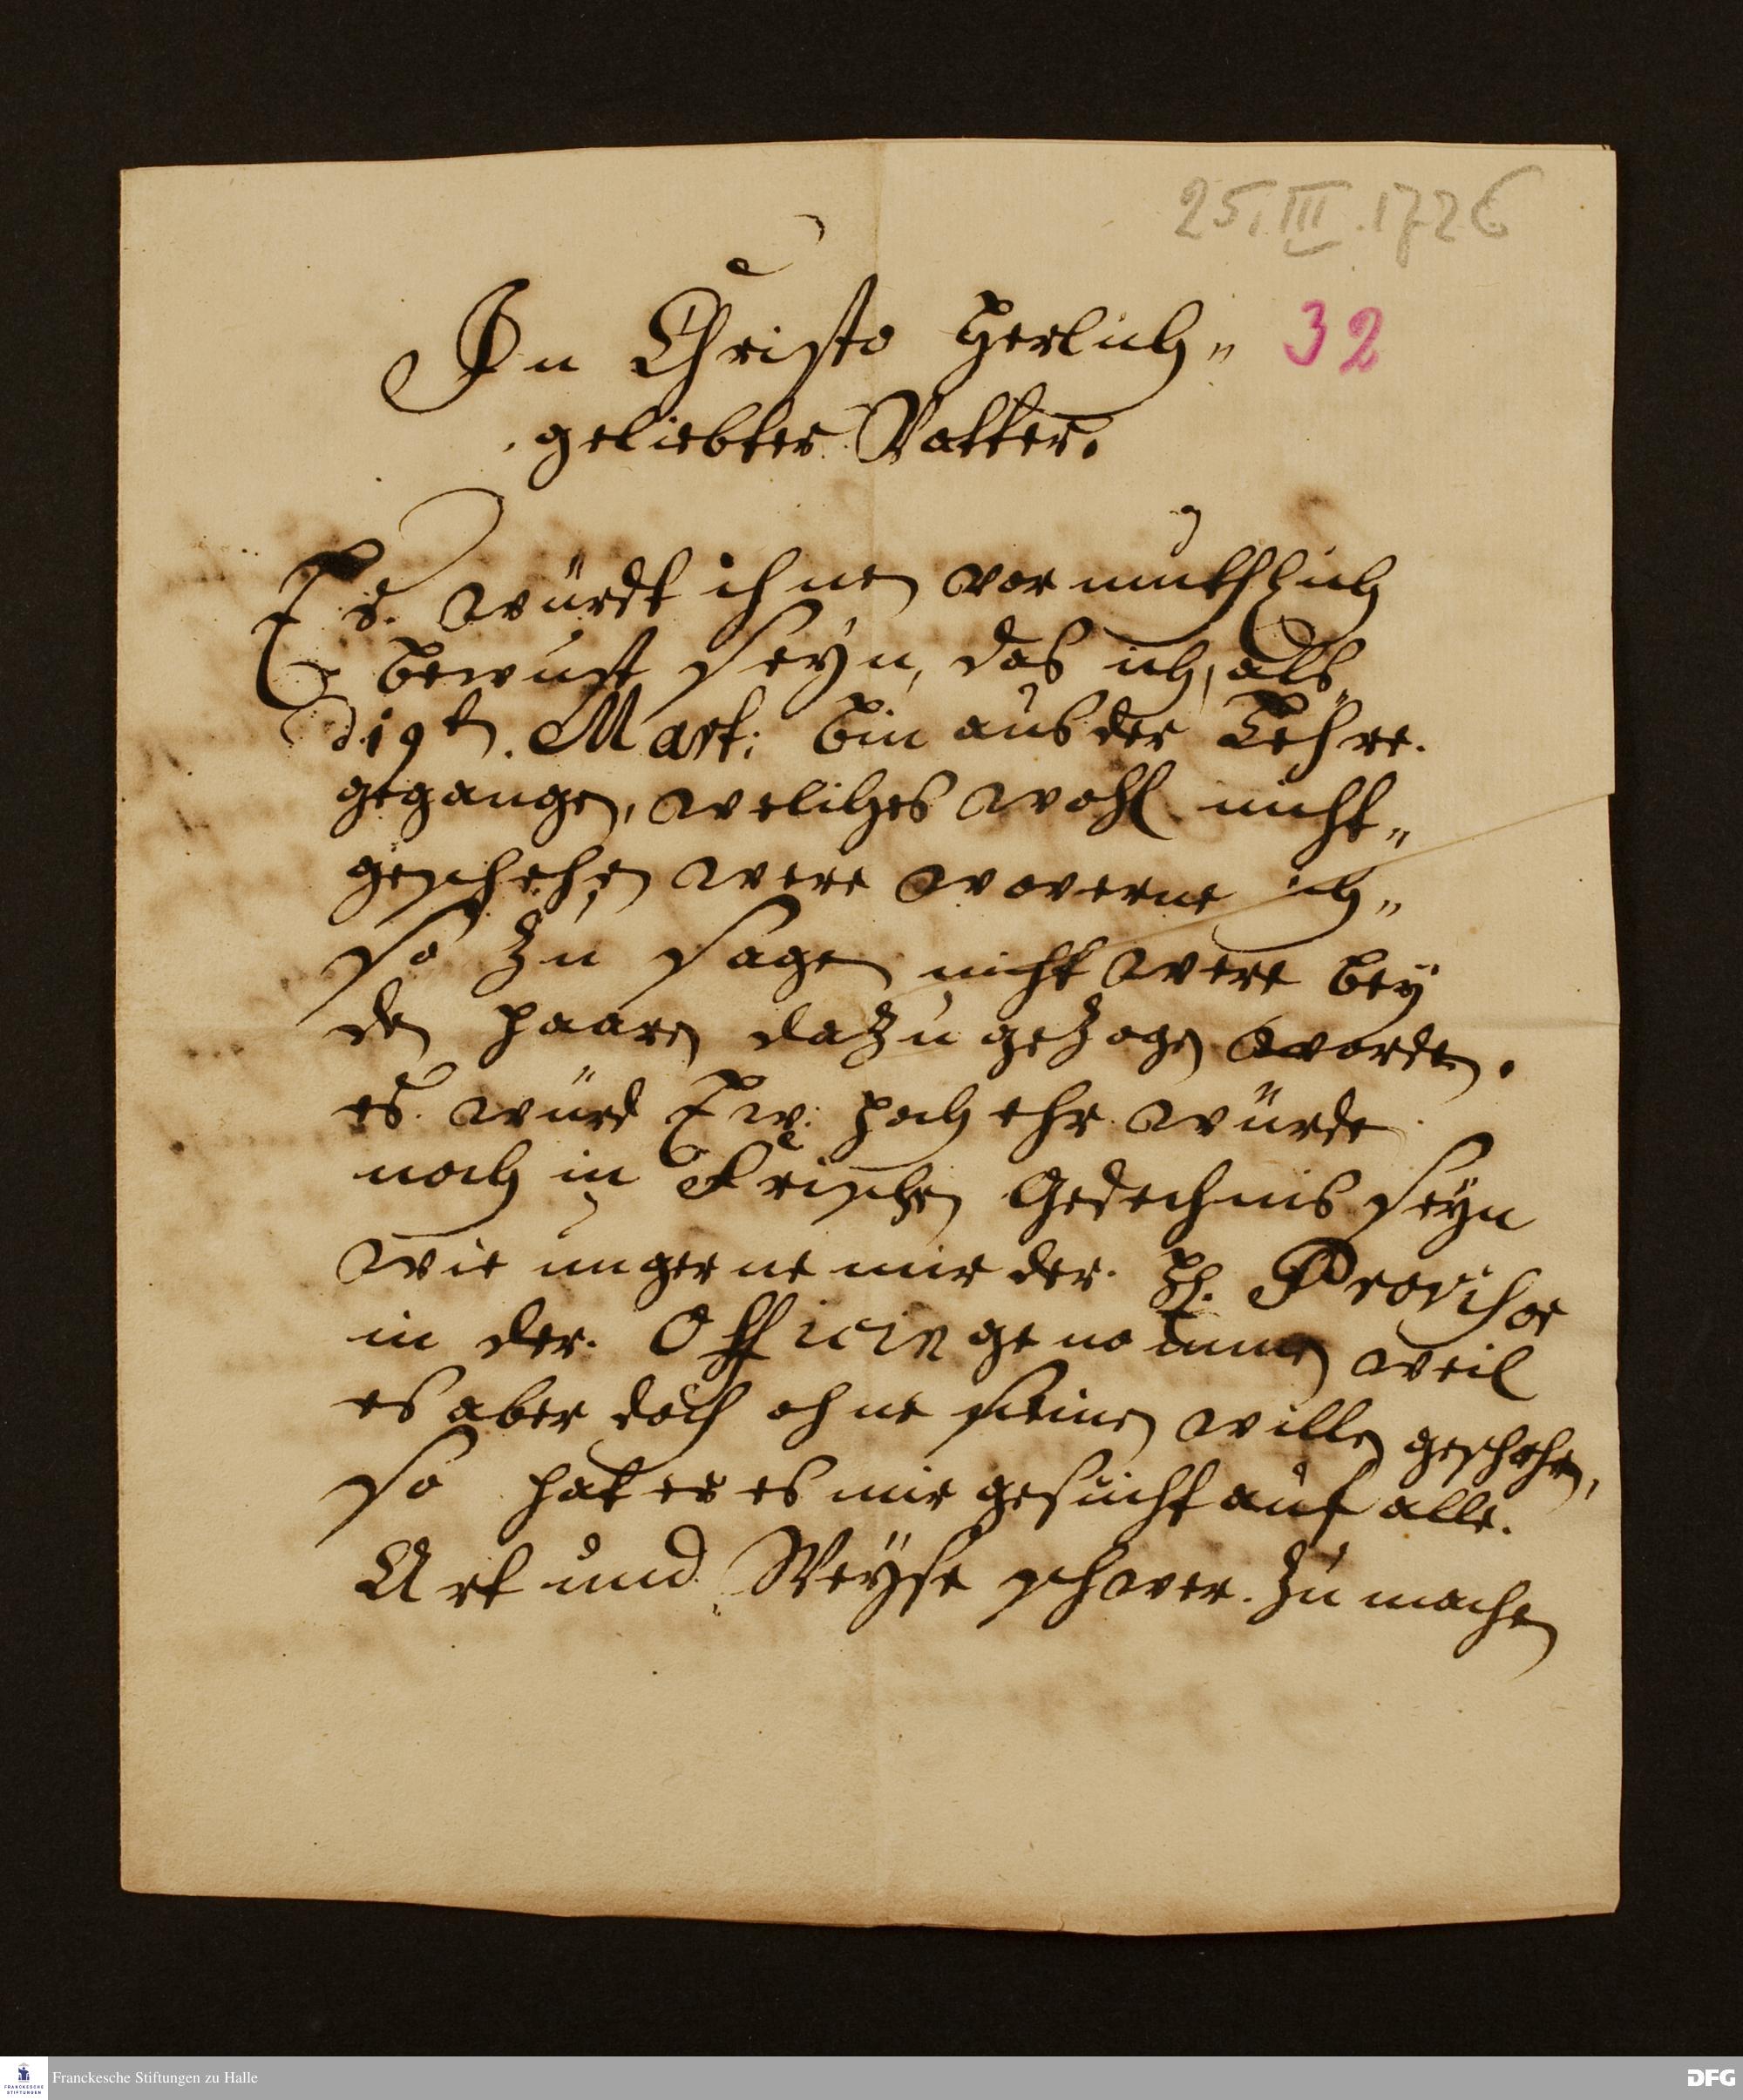 25. III. 1726
In Christo Herlich„ 32
geliebter Vatter.
Es. würdt ihnen vor muthlich
bewust seyn, das ich, als
d 19t. Mart: bin aus der Lehre.
gegangen, welches wohl nicht„
geschehen were woverne ich„
so zu sagen nicht were bey
den haaren dazu gezogen worden.
es. würd Ew: hoch ehr würde
noch in Frischen Gedechnis seyn
wie ungerne mir der. H. Provisor
in der. Officin genommen weil
es aber doch ohne seinen willen geschehen,
so hat er es mir gesucht auf alle.
Art und Weyse schwer. zu machen
Franckesche Stiftungen zu Halle
FRANCKESCHE STIFTUNGEN
DFG